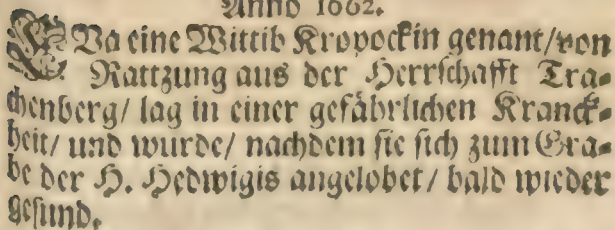 Anno 1662.
EVa eine Wittib Kropockin genant/von
Rattzung aus der Herrschafft Tra-
chenberg/ lag in einer gefährlichen Kranck-
heit/ und wurde/ nachdem sie sich zum Gra-
be der H. Hedwigis angelobet/ bald wieder
gesund.